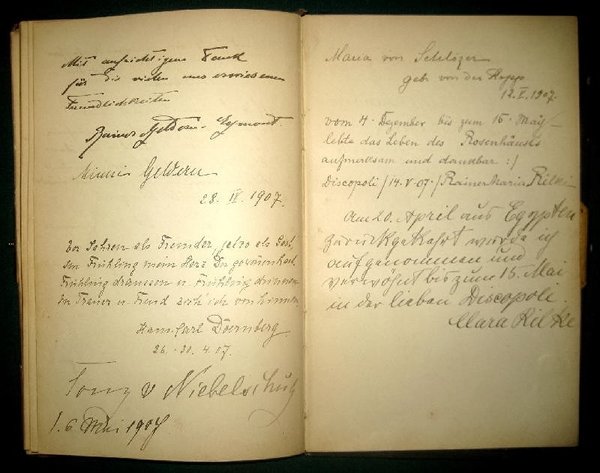 Mit aufrichtigem Dank
für die vielen uns erwiesenen
Freundlichkeiten
Geldern - Egmont
Minnie Geldern
28. IV. 1907.
Frühling mein Herz
Frühling draussen u. Frühling drinnen
in Trauer u. Freud ich von hinnen
Hans-Carl Dörnberg
26.-30. 4. 07.
Tony v Niebelschütz
1. 6. Mai 1907
Maria von Schlözer
geb. von der Ropp
12. V. 1907.
vom 4. Dezember bis zum 16. May
lebte das Leben des Rosenhäusls
aufmerksam und dankbar :/
Discopoli / 14. V. 07. / Rainer Maria Rilke
Am 20. April aus Egypten
zurückgekehrt wurde ich
aufgenommen und
verwöhnt bis zum 16. Mai
in der lieben Discopoli
Clara Rilke